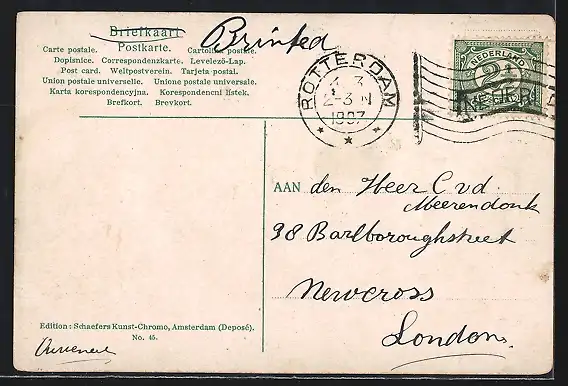 Briefkaart
Printed
Postkarte.
Carte postale. Cartolina postale.
Dopisnice. Correspondenzkarte. Levelező-Lap.
Post card. Weltpostverein. Tarjeta postal.
Union postale universelle. Unione postale universale.
Karta korespondencyjna. Korespondenční lístek.
Brefkort. Brevkort.
ROTTERDAM
2-3 N
1907
NEDERLAND
2½
CENT
AAN den Heer C v d
Meerendonk
98 Barlboroughstreet
Newcross
London
Edition: Schaefers Kunst-Chromo, Amsterdam (Deposé).
No. 45.